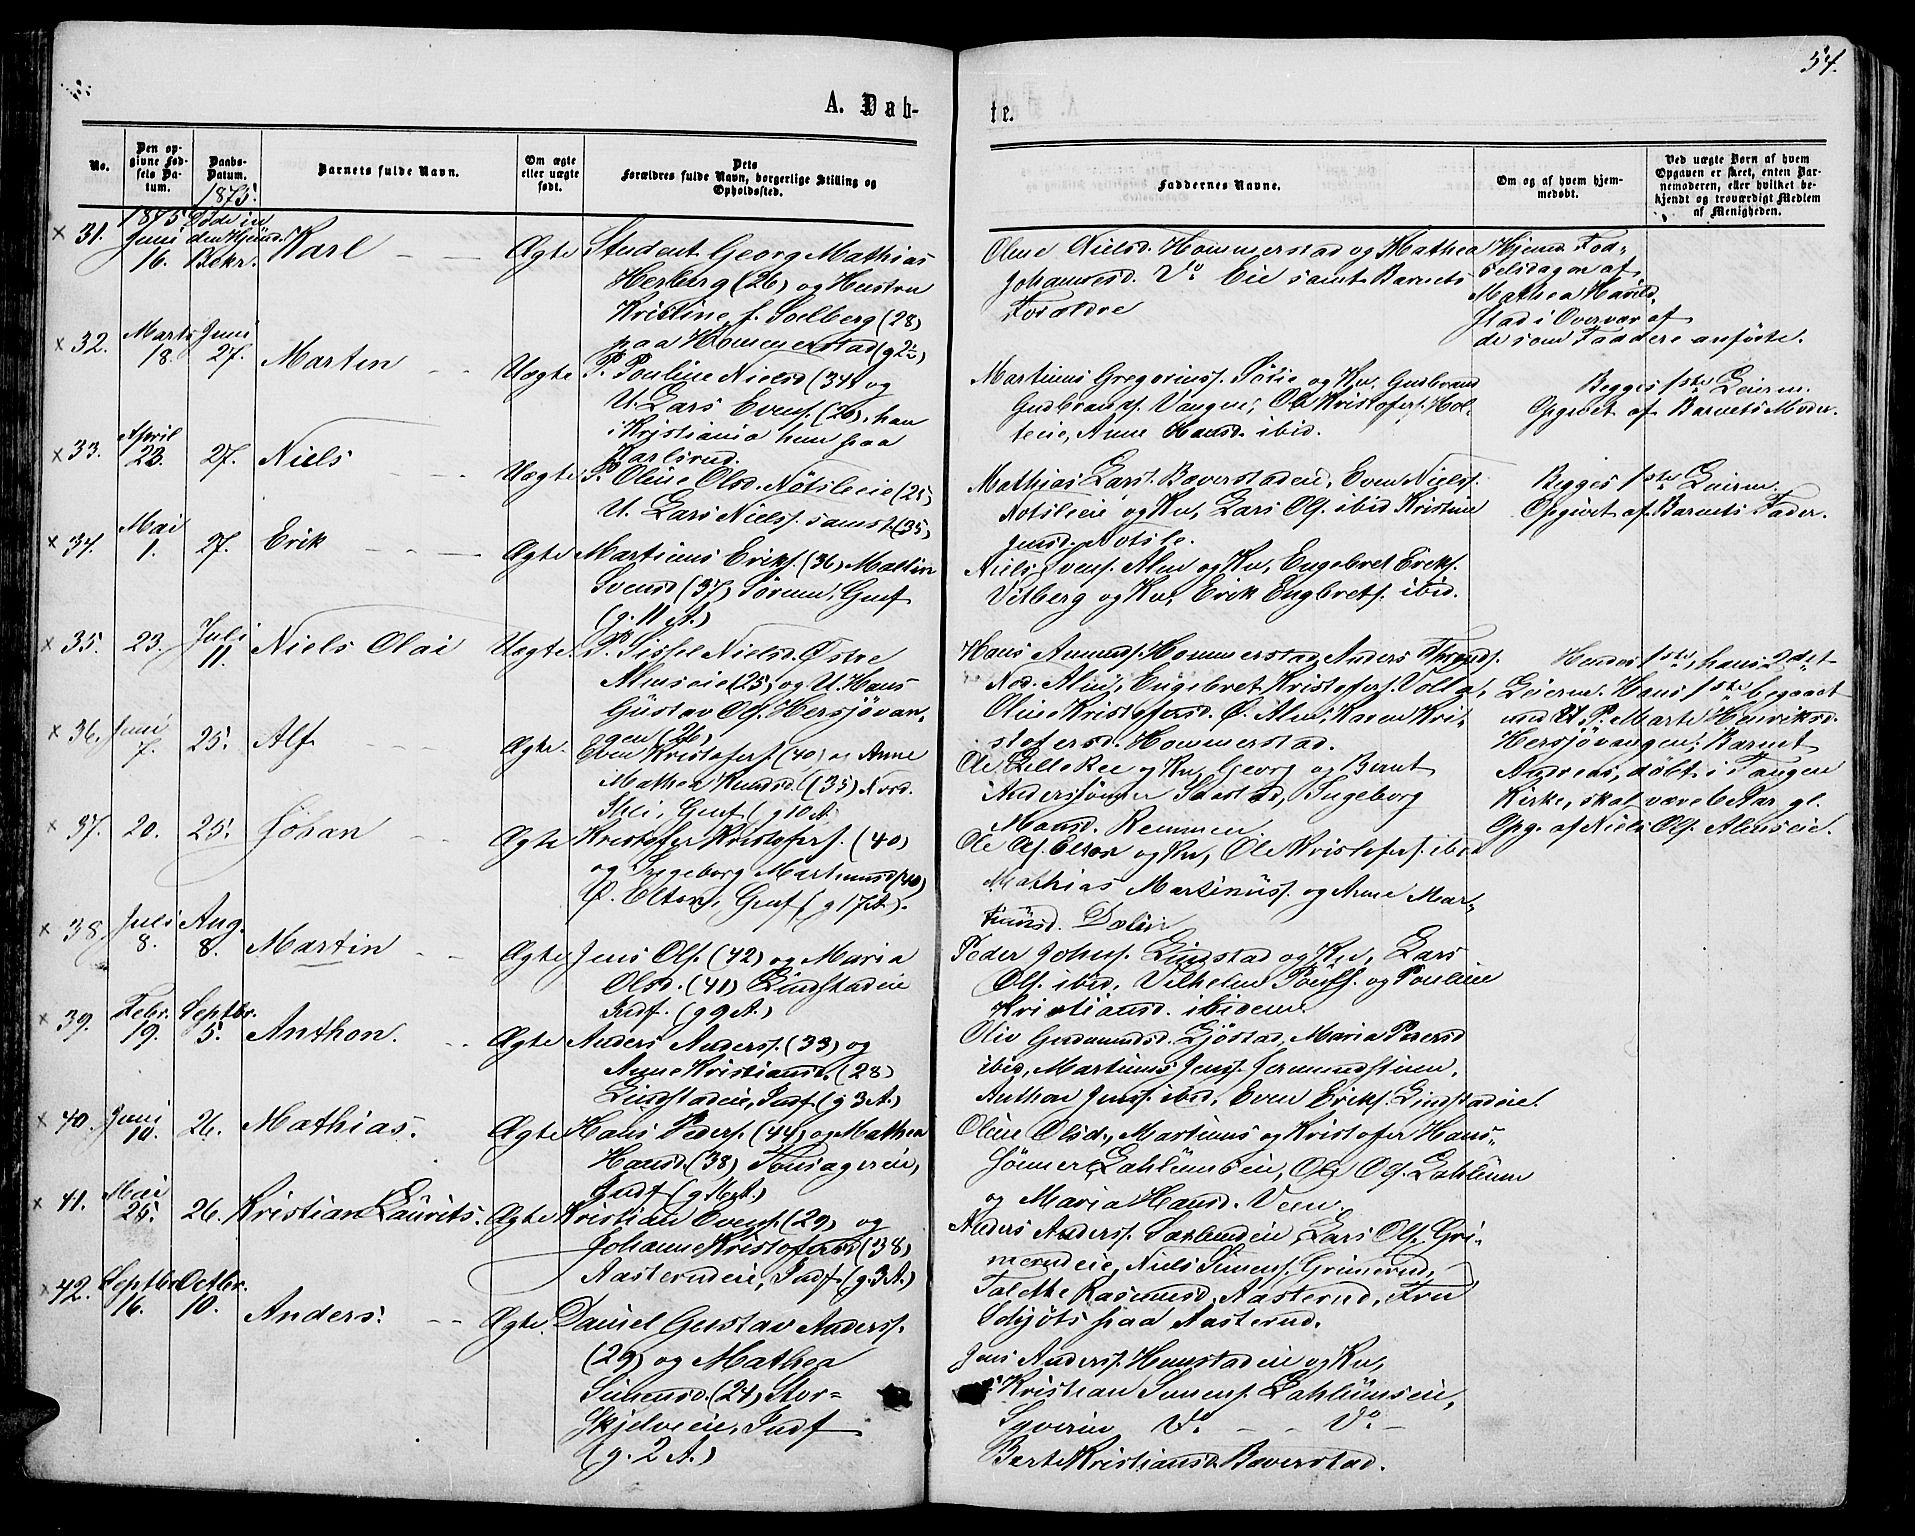 54.
A. Dab-
te.
No.
Den op-
givne Fød-
sels Da-
tum.
Daabs-
Datum.
1875.
Barnets fulde Navn.
Om ægte
eller uægte
født.
Dets
Forældres fulde Navn, borgerlige Stilling og
Opholdssted.
Faddernes Navne.
Om og af hvem hjem-
medøbt.
Ved uægte Børn af hvem
Opgaven er skeet, enten Bar-
nemoderen, eller hvilket be-
kjendt og troværdigt Medlem
af Menigheden.
× 31.
1875
Juni
16.
Døde in
den Hjemd.
Bekr.
Karl
Ægte
Student Georg Mathias
Herberg (26) og Hustru
Kristine f. Solberg (28)
paa Hommerstad
Oline Nielsd. Hommerstad og Mathea
Johannesd. Do Eie samt Barnets
Forældre
Hjemd. Fød-
selsdagen af
Mathea
stad i Overvær af
de som Faddere anførte.
× 32.
Marts
18.
Juni
27.
Martin
Uægte
P. Pouline Nielsd (34) og
U. Lars Evens. (26), han
i Kristiania hun paa
Karlsrud.
Martinus Gregoriuss. Sölie og Kv, Gudbrand
Gudbrands. Vangen, Ole Kristofers. Hol-
teie, Anne Hansd. ibid.
Begges 1ste Leierm.
Opgivet af Barnets Moder.
× 33.
April
23.
27.
Niels
Uægte
P. Oline Olsd. Nötsleeie (25)
U. Lars Niels. samst. (35)
Mathias Lars. Baverstadeie, Even Niels.
Notsleeie og Kv, Lars Ols. ibid Kristine
Jensd. Notsle.
Begges 1ste Leierm.
Opgivet af Barnets Fader.
× 34.
Mai
1.
27.
Erik
Ægte
Martinus Eriks. (36) Mallin
Svensd (37) Sörum, Gmf
(g. 11 A.)
Niels Svens. Alm og Kv, Engebret Eriks.
Vitberg og Kv, Erik Engbrets. ibid.
× 35.
23.
Juli
11.
Niels Olai
Uægte.
P. Sissel Nielsd. Østre
Almseie (25) og U. Hans
Gustav Ols. Hersjövan-
gen (26)
Hans Amunds. Hommerstad, Anders
Ned. Alm, Engebret Kristofers. Volla,
Oline Kristofersd. Ø. Alm, Karen Kri-
stofersd. Hommerstad.
Hendes 1ste, hans 2det
Leierm. Hans 1ste begaaet
med P. Marte Henriksd.
Hersjövangen; Barnet
Andreas, döbt i Tangen
Kirke, skal være 6 Aar gl.
Opg. af Niels Ols. Almseie.
× 36.
Juni
7.
25.
Alf
Ægte.
Even Kristofers. (40) og Anne
Mathea Knudsd. (35) Nord.
Stei, Gmf (g 10 A.
Ole Lille Ree og Kv, Georg og Bernt
Anderssönner Saastad, Ingeborg
Monsd. Remmen
× 37.
20.
25.
Johan
Ægte
Kristofer Kristofers. (40)
og Ingeborg Martinusd (40)
Ø. Elton, Gmf (g 17 A).
Ole Ols. Elton og Kv, Ole Kristofers. ibid
Mathias Martinus. og Anne Mar-
tinusd. Dælin
× 38.
Juli
8.
Aug.
8.
Martin
Ægte
Jens Ols. (42) og Maria
Olsd. (41) Lindstadeie
Indf. (g 9 A.)
Peder Johns. Lindstad og Kv, Lars
Ols. ibid. Vilhelm Pouls. og Pouline
Kristiansd. ibidem.
× 39.
Febr.
19.
Septbr.
5.
Anthon.
Ægte
Anders Anders. (33) og
Anne Kristiansd. (28)
Lindstadeie, Indf (g 3 A.)
Oliv Gudmundsd. Ljöstad, Maria Pedersd
ibid, Martinus Jens. Jermundstuen,
Anthon Jens. ibid, Even Eriks. Lindstadeie.
× 40.
Juni
14.
26.
Mathias.
Ægte
Hans Peders. (44) og Mathea
Hansd. (38) Tomsagereie,
Indf (g A.)
Oline Olsd., Martinus og Kristofer Hans-
sönner Lahlumseie, Ole Ols. Lahlum
og Maria Hansd. Veen.
× 41.
Mai
25.
26.
Kristian Laurits.
Ægte
Kristian Evens. (29) og
Johanne Kristofersd (38)
Aasterudeie, Indf. (g. 3 A.)
Anders Anders. Sørlundeie, Lars Ols. Gri-
merudeie, Niels Simens. Grimerud,
Talette Rasmusd. Aasterud, Fru
Schjöts paa Aasterud.
× 42.
Septbr.
16.
Octbr.
10.
Anders.
Ægte.
Daniel Gustav Anders.
(29) og Mathea
Simensd. (24) Stor-
Skjelveeie, Indf
(g. 2 A.)
Jens Anders. Hemstadeie og Kv,
Kristian Simens. Lahlumseie,
Syverin Do. - - Do. -
Berte Kristiansd. Baverstad.